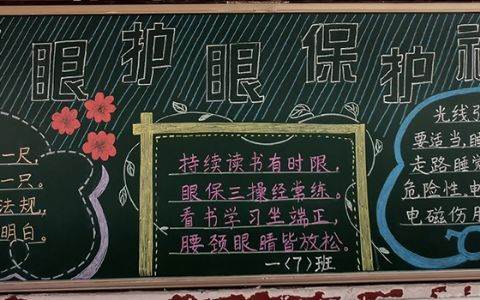 眼护眼保护
一尺,
一只。
法规,
明白。
持续读书有时限,
眼保三操经常练。
看书学习坐端正,
腰颈眼睛皆放松。
一〈7〉班
光线
要适当,
走路睡
危险性
电磁伤